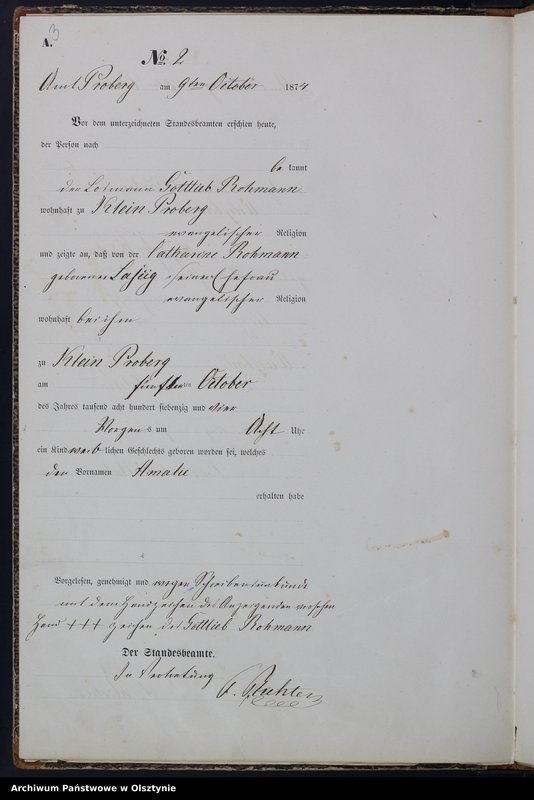 3
A.
№ 2
Amt Proberg am 9ten October 1874
Vor dem unterzeichneten Standesbeamten erschien heute,
der Person nach
be kannt
der Losmann Gottlieb Rohmann
wohnhaft zu Klein Proberg
evangelischer Religion
und zeigte an, daß von der Catharine Rohmann
geborenen seiner Ehefrau
evangelischer Religion
wohnhaft bei ihm
zu Klein Proberg
am fünften October
des Jahres tausend acht hundert siebenzig und vier
Morgens um Acht Uhr
ein Kind weiblichen Geschlechts geboren worden sei, welches
den Vornamen Amalie
erhalten habe
Vorgelesen, genehmigt und wegen Schreibensunkunde
mit dem Handzeichen des Anzeigenden versehen
Hand +++ zeichen des Gottlieb Rohmann
Der Standesbeamte.
In Vertretung
Archiwum Państwowe w Olsztynie